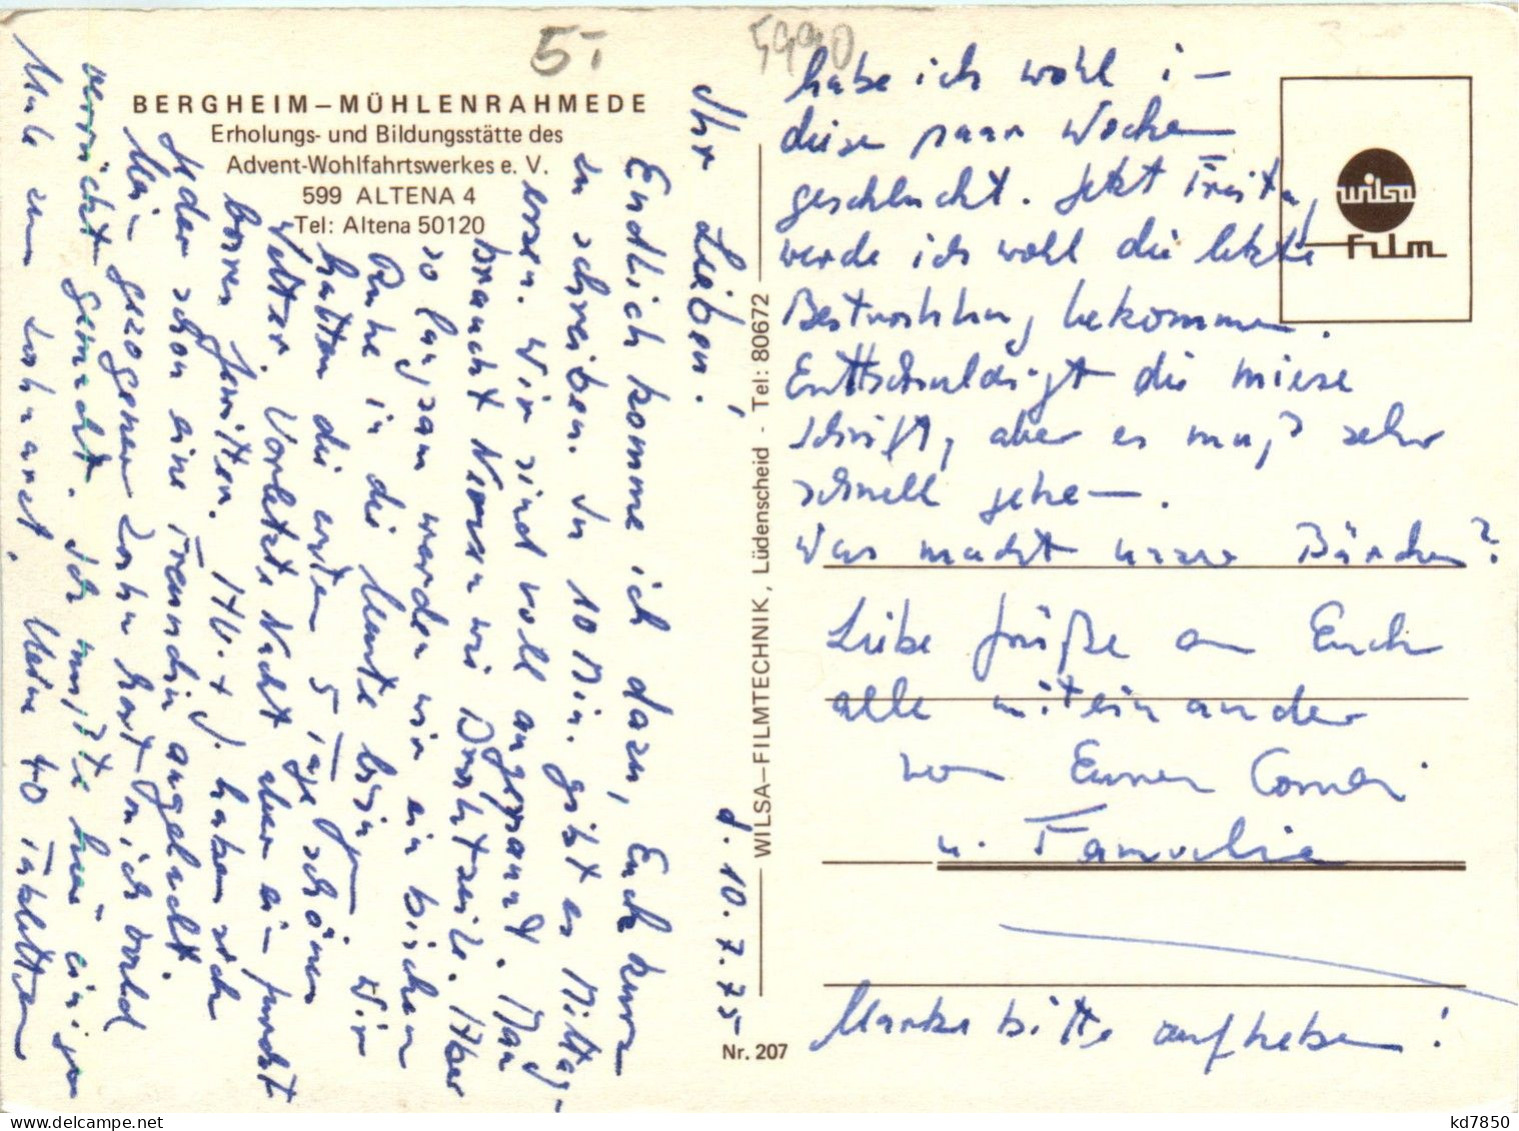 5,-
5990
BERGHEIM – MÜHLENRAHMEDE
Erholungs- und Bildungsstätte des
Advent-Wohlfahrtswerkes e. V.
599 ALTENA 4
Tel: Altena 50120
d. 10.7.75
Ihr Lieben!
Endlich komme ich dazu, Euch kurz
zu schreiben. In 10 Min. gibt es Mittag-
essen. Wir sind voll angespannt. Man
braucht Nerven wie Drahtseile. Aber
so langsam werden wir ein bischen
Ruhe in die Meute bringen. Wir
hatten die ersten 5 Tage schönes
Wetter. Vorletzte Nacht aber ein furcht
bares Gewitter. H. + J. haben sich
jeder schon eine Freundin angelacht.
Mein gezogener Zahn hat mich wild
verrückt gemacht. Ich mußte hier einigen
Male zum Zahnarzt. Meine 40 Tabletten
habe ich wohl in
diesen paar Wochen
geschluckt. Jetzt Freitag
werde ich wohl die letzte
Bestrahlung bekommen.
Enttschuldigt die miese
Schrift, aber es muß sehr
schnell gehen.
Was macht unser Bärchen?
Liebe Grüße an Euch
alle miteinander
von Eurer
u. Familie
Marke bitte aufheben!
WILSA–FILMTECHNIK, Lüdenscheid - Tel: 80672
Nr. 207
wilsa
Film
kd7850